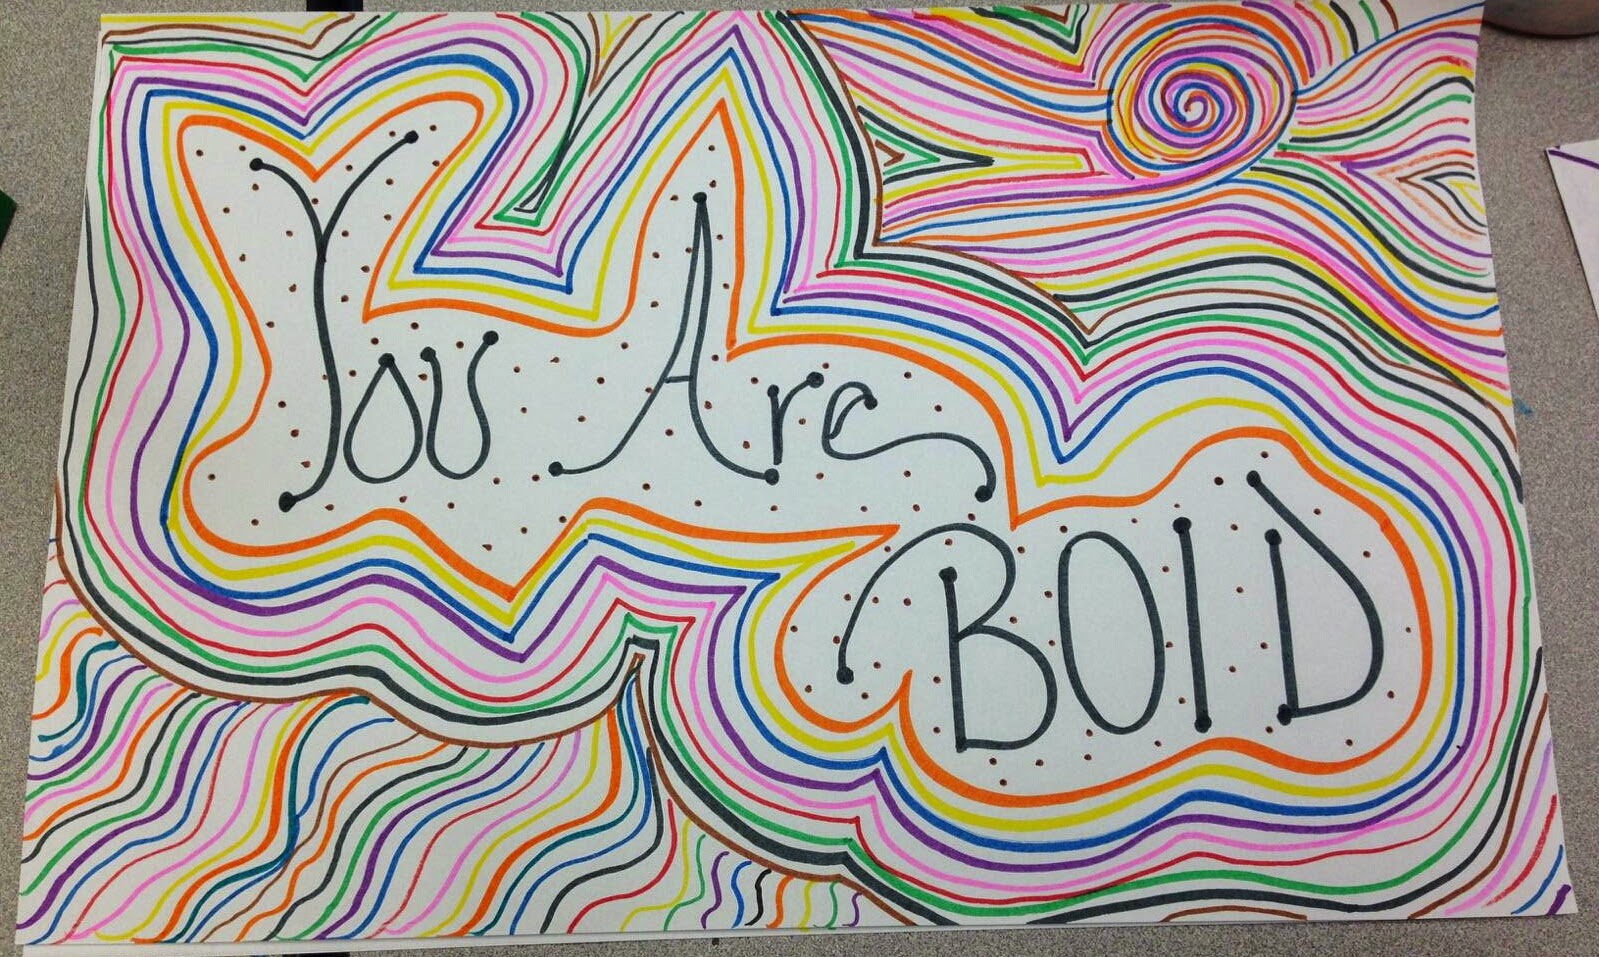 You Are
BOlD